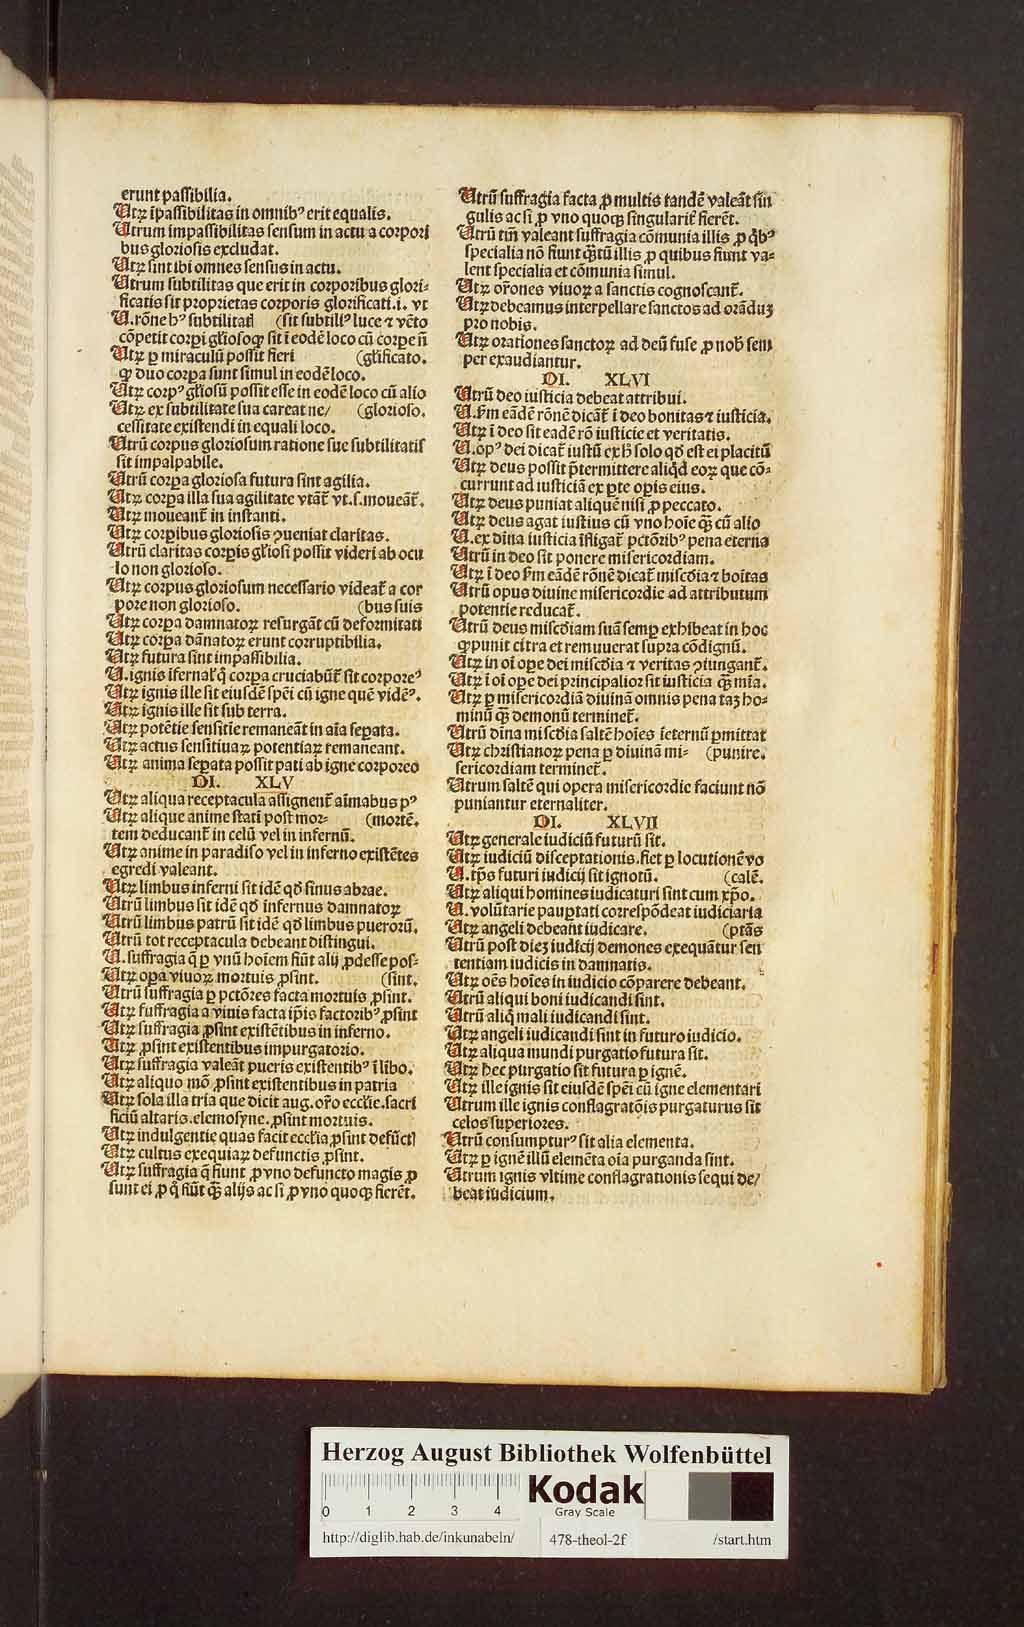 erunt passibilia.
Utꝝ īpassibilitas in omnibꝰ erit equalis.
Utrum impassibilitas sensum in actu a corpori
bus gloriosis excludat.
Utꝝ sint ibi omnes sensus in actu.
Utrum subtilitas que erit in corporibus glori⸗
ficatis sit proprietas corporis glorificati.i. vt
U.rōne hꝰ subtilitati (sit subtiliꝰ luce ⁊ vēto
cōpetit corpi gl̄iosoqꝫ sit ī eodē loco cū corpe n̄
Utꝝ ꝑ miraculū possit fieri (gl̄ificato.
ꝙ duo corpa sunt simul in eodē loco.
Utꝝ corpꝰ gl̄iosū possit esse in eodē loco cū alio
Utꝝ ex subtilitate sua careat ne/ (glorioso.
cessitate existendi in equali loco.
Utrū corpus gloriosum ratione sue subtilitatis
sit impalpabile.
Utrū corpa gloriosa futura sint agilia.
Utꝝ corpa illa sua agilitate vtāt̄ vt.s.moueāt̄.
Utꝝ moueant̄ in instanti.
Utꝝ corpibus gloriosis ꝯueniat claritas.
Utrū claritas corpis gl̄iosi possit videri ab ocu
lo non glorioso.
Utꝝ corpus gloriosum necessario videat̄ a cor
pore non glorioso. (bus suis
Utꝝ corpa damnatoꝝ resurgāt cū deformitati
Utꝝ corpa dānatoꝝ erunt corruptibilia.
Utꝝ futura sint impassibilia.
U.ignis īfernal̄ q̄ corpa cruciabūt̄ sit corporeꝰ
Utꝝ ignis ille sit eiusdē spēi cū igne quē vidēꝰ.
Utꝝ ignis ille sit sub terra.
Utꝝ potētie sensitie remaneāt in aīa sepata.
Utꝝ actus sensitiuaꝝ potentiaꝝ remaneant.
Utꝝ anima sepata possit pati ab igne corporeo
DI. XLV
Utꝝ aliqua receptacula assignent̄ aīmabus pꝰ
Utꝝ alique anime stati post mor⸗ (mortē.
tem deducant̄ in celū vel in infernū.
Utꝝ anime in paradiso vel in inferno existētes
egredi valeant.
Utꝝ limbus inferni sit idē qd̄ sinus abrae.
Utrū limbus sit idē qd̄ infernus damnatoꝝ
Utrū limbus patrū sit idē qd̄ limbus puerorū.
Utrū tot receptacula debeant distingui.
U.suffragia q̄ ꝑ vnū hoīem fiūt alij ꝓdesse pos⸗
Utꝝ opa viuoꝝ mortuis ꝓsint. (sint.
Utrū suffragia ꝑ pctōres facta mortuis ꝓsint.
Utꝝ suffragia a viuis facta ip̄is factoribꝰ ꝓsint
Utꝝ suffragia ꝓsint existētibus in inferno.
Utꝝ ꝓsint existentibus impurgatorio.
Utꝝ suffragia valeāt pueris existentibꝰ ī lībo.
Utꝝ aliquo mō ꝓsint existentibus in patria
Utꝝ sola illa tria que dicit aug.or̄o eccl̄ie.sacri
ficiū altaris.elemosyne.ꝓsint mortuis.
Utꝝ indulgentie quas facit eccl̄ia ꝓsint defūcti
Utꝝ cultus exequiaꝝ defunctis ꝓsint.
Utꝝ suffragia q̄ fiunt ꝓ vno defuncto magis ꝓ
sunt ei ꝓ q̄ fiūt qꝫ̄ alijs ac si ꝓ vno quoqꝫ fierēt.
Utrū suffragia facta ꝓ multis tandē valeāt sin
gulis ac si ꝓ vno quoqꝫ singularit̄ fierēt.
Utrū tm̄ valeant suffragia cōmunia illis ꝓ q̄bꝰ
specialia nō fiunt qꝫ̄tū illis ꝓ quibus fiunt va⸗
lent specialia et cōmunia simul.
Utꝝ or̄ones viuoꝝ a sanctis cognoscant̄.
Utꝝ debeamus interpellare sanctos ad orādūꝫ
pro nobis.
Utꝝ orationes sanctoꝝ ad deū fuse ꝓ nob̄ sem
per exaudiantur.
DI. XLVI
Utrū deo iusticia debeat attribui.
U.ẜm eādē rōnē dicāt̄ ī deo bonitas⁊ iusticia.
Utꝝ ī deo sit eadē rō iusticie et veritatis.
U.opꝰ dei dicat̄ iustū ex h̄ solo qd̄ est ei placitū
Utꝝ deus possit p̄termittere aliqd̄ eoꝝ que cō⸗
currunt ad iusticiā ex ꝑte opis eius.
Utꝝ deus puniat aliquē nisi ꝓ peccato.
Utꝝ deus agat iustius cū vno hoīe qꝫ̄ cū alio
U.ex dīna iusticia īfligat̄ pctōribꝰ pena eterna
Utrū in deo sit ponere misericordiam.
Utꝝ ī deo ẜm eādē rōnē dicat̄ misc̄dia ⁊ boītas
Utrū opus diuine misericordie ad attributum
potentie reducat̄.
Utrū deus misc̄diam suā semꝑ exhibeat in hoc
ꝙ punit citra et remuuerat supra cōdignū.
Utꝝ in oī ope dei misc̄dia ⁊ veritas ꝯiungant̄.
Utꝝ ī oī ope dei principalior sit iusticia qꝫ̄ mīa.
Utꝝ ꝑ misericordiā diuinā omnis pena taꝫ ho⸗
minū qꝫ̄ demonū terminet̄.
Utrū dīna misc̄dia saltē hoīes īeternū ꝑmittat
Utꝝ christianoꝝ pena ꝑ diuinā mi⸗ (punire.
sericordiam terminet̄.
Utrum saltē qui opera misericordie faciunt nō
puniantur eternaliter.
DI. XLVII
Utꝝ generale iudiciū futurū sit.
Utꝝ iudiciū disceptationis.fiet ꝑ locutionē vo
U.tp̄s futuri iudicij sit ignotū. (calē.
Utꝝ aliqui homines iudicaturi sint cum xp̄o.
U.volūtarie paupertati correspōdeat iudiciaria
Utꝝ angeli debeant iudicare. (ptās
Utrū post dieꝫ iudicij demones exequātur sen
tentiam iudicis in damnatis.
Utꝝ oēs hoīes in iudicio cōparere debeant.
Utrū aliqui boni iudicandi sint.
Utrū aliq̄ mali iudicandi sint.
Utꝝ angeli iudicandi sint in futuro iudicio.
Utꝝ aliqua mundi purgatio futura sit.
Utꝝ hec purgatio sit futura ꝑ ignē.
Utꝝ ille ignis sit eiusdē spēi cū igne elementari
Utrum ille ignis conflagratōis purgaturus sit
celos superiores.
Utrū consumpturꝰ sit alia elementa.
Utꝝ ꝑ ignē illū elemēta oīa purganda sint.
Utrum ignis vltime conflagrationis sequi de/
beat iudicium.
Herzog August Bibliothek Wolfenbüttel
0 1 2 3 4
Kodak
Gray Scale
http://diglib.hab.de/inkunabeln/ 478-theol-2f /start.htm